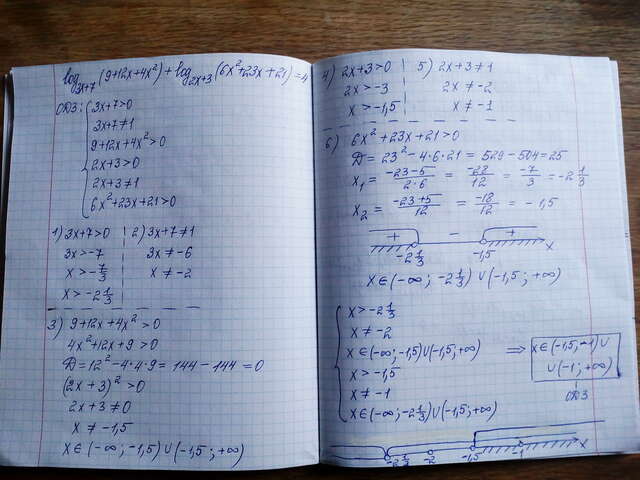 log₃ₓ₊₇(9+12x+4x²)+log₂ₓ₊₃(6x²+23x+21)=4
ОДЗ: 3x+7>0
3x+7≠1
9+12x+4x²>0
2x+3>0
2x+3≠1
6x²+23x+21>0
1) 3x+7>0 2) 3x+7≠1
3x>-7 3x≠-6
x>-7/3 x≠-2
x>-2 1/3
3) 9+12x+4x²>0
4x²+12x+9>0
D=12²-4·4·9=144-144=0
(2x+3)²>0
2x+3≠0
x≠-1,5
x∈(-∞;-1,5)∪(-1,5;+∞)
4) 2x+3>0 5) 2x+3≠1
2x>-3 2x≠-2
x>-1,5 x≠-1
6) 6x²+23x+21>0
D=23²-4·6·21=529-504=25
x₁=(-23-5)/(2·6)=-28/12=-7/3=-2 1/3
x₂=(-23+5)/12=-18/12=-1,5
+ - +
-2 1/3 -1,5 x
x∈(-∞;-2 1/3)∪(-1,5;+∞)
x>-2 1/3
x≠-2
x∈(-∞;-1,5)∪(-1,5;+∞) ⇒ x∈(-1,5;-1)∪
x>-1,5 ∪(-1;+∞)
x≠-1 ОДЗ
x∈(-∞;-2 1/3)∪(-1,5;+∞)
-2 1/3 -2 -1,5 -1 x